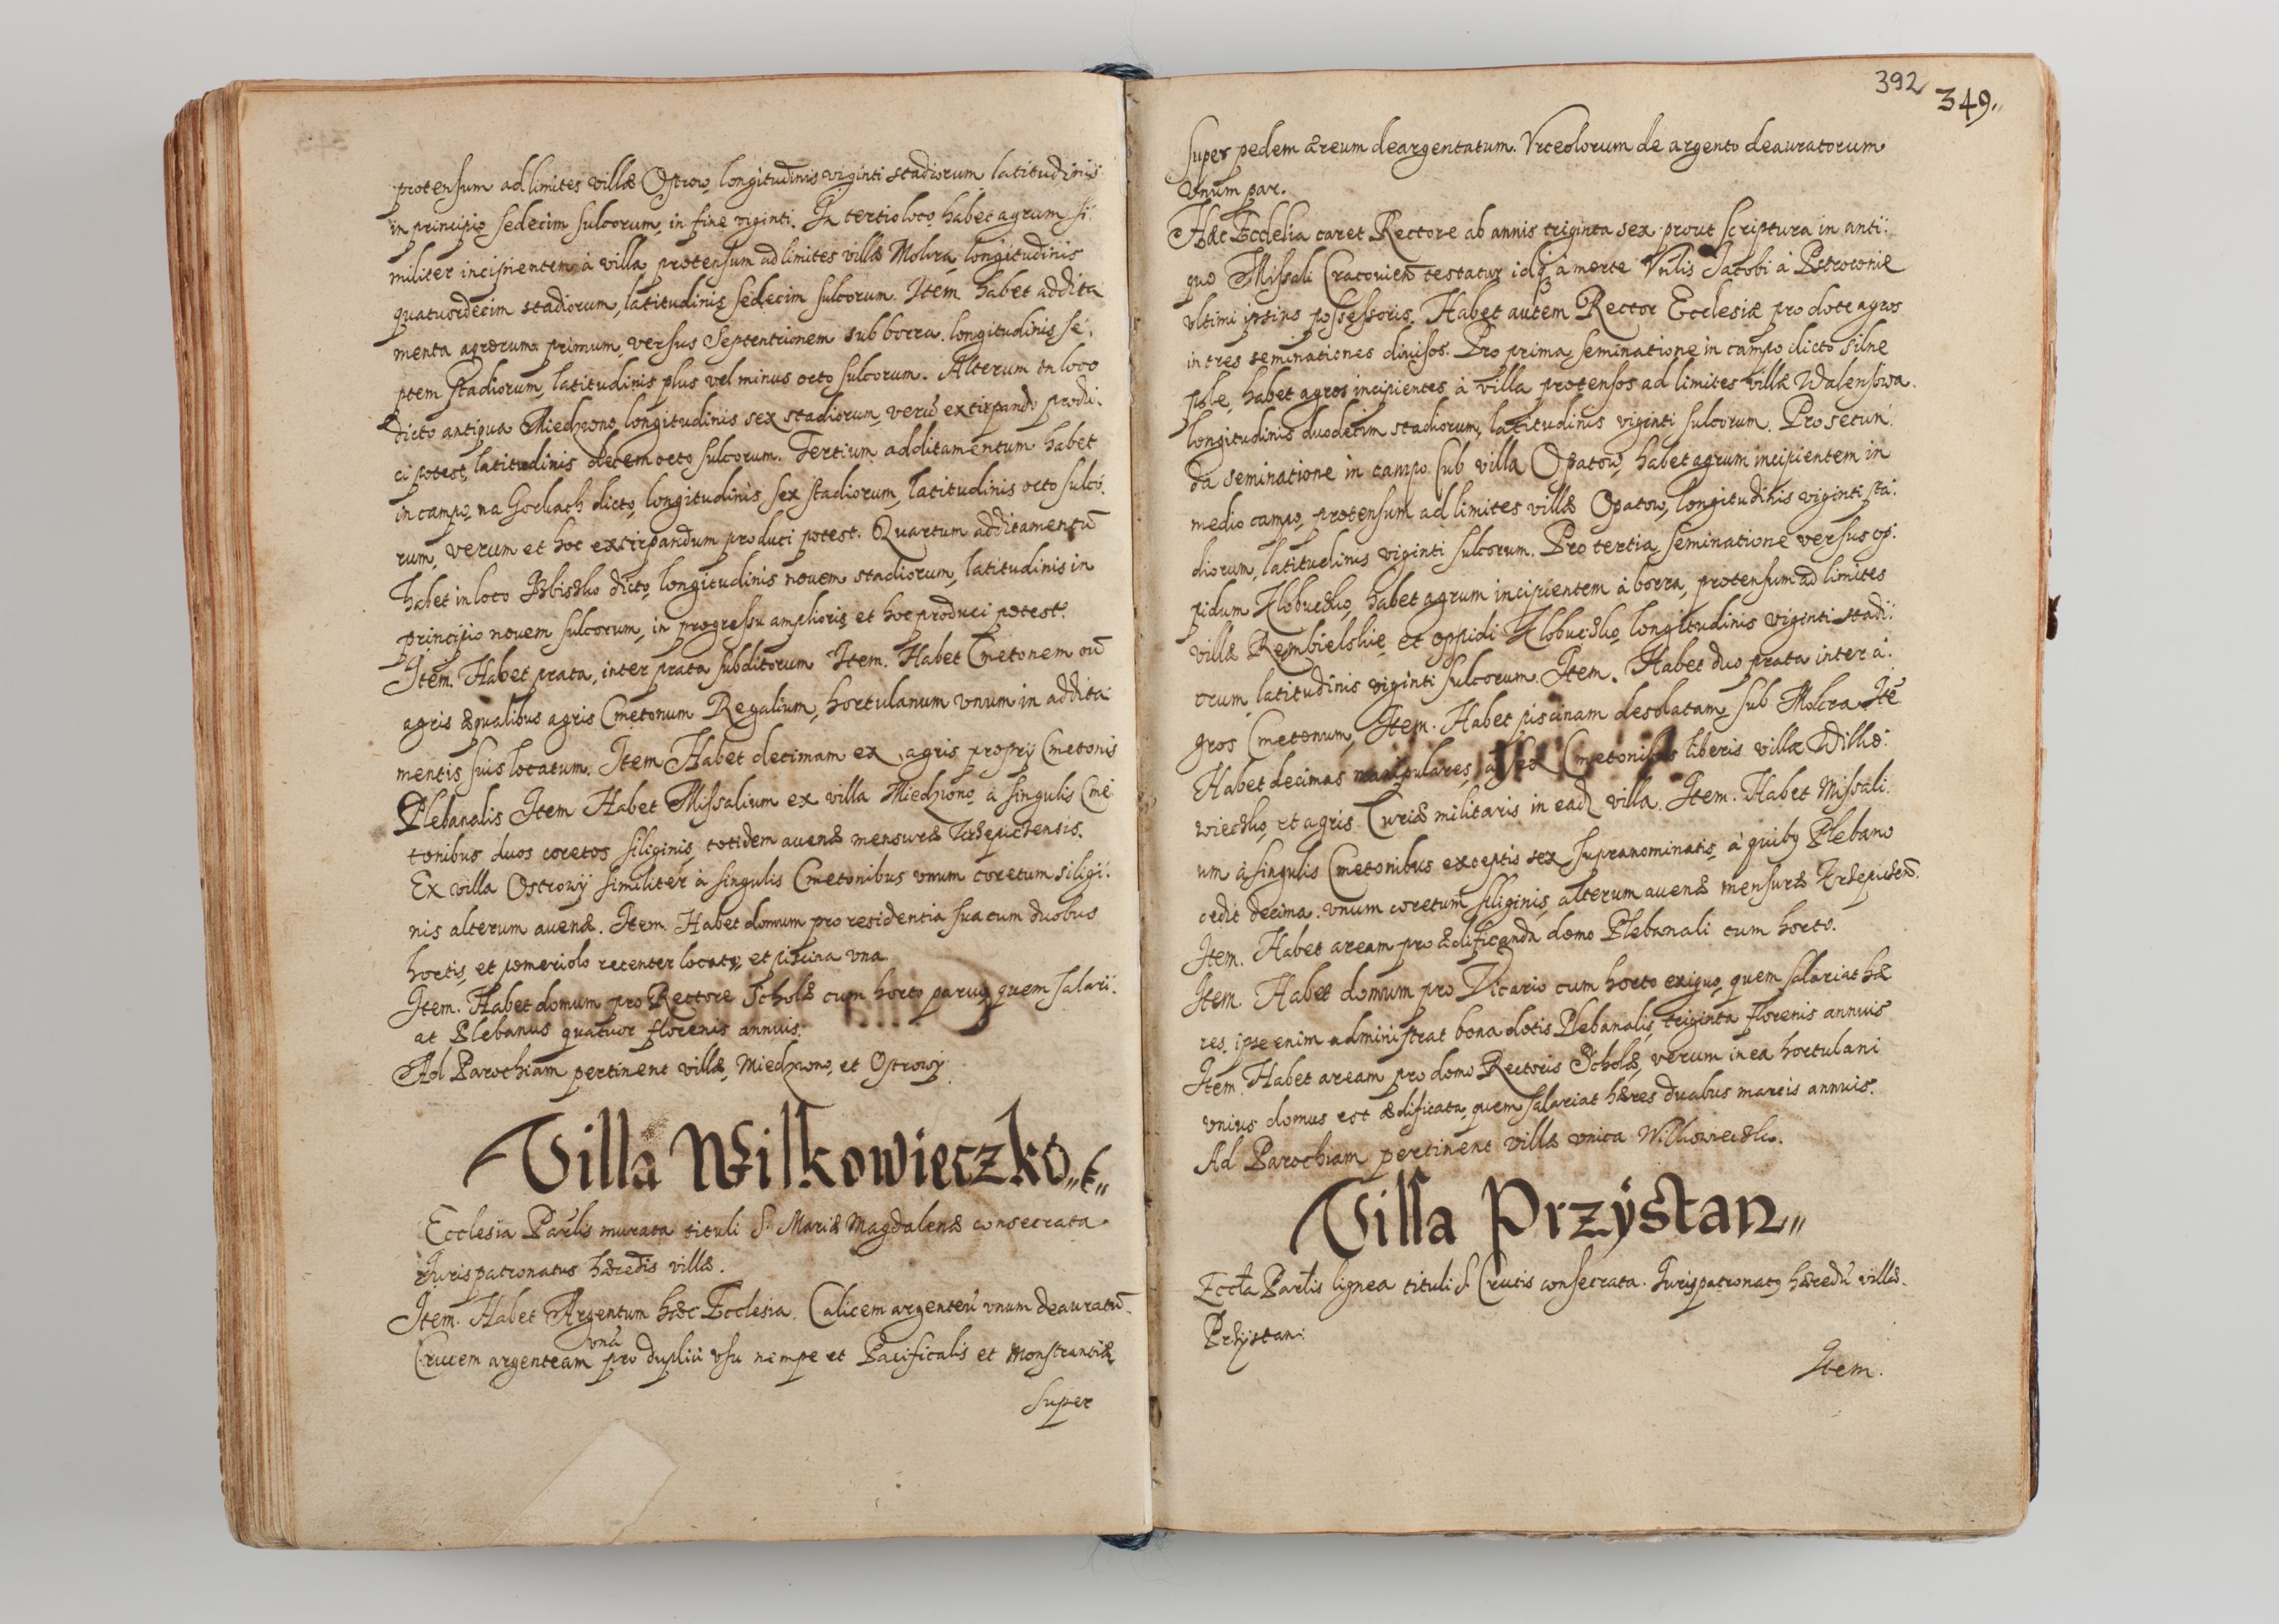 protensum ad limites villæ Ostrow, longitudinis viginti stadiorum latitudinis
in principio sedecim sulcorum, in fine viginti. In tertio loco habet agrum si-
militer incipientem à villa, protensum ad limites villæ Mokra, longitudinis
quatuordecim stadiorum, latitudinis sedecim sulcorum. Item habet addita
menta agrorum primum, versus Septentrionem sub borra longitudinis se-
ptem stadiorum, latitudinis plus vel minus octo sulcorum. Alterum in loco
dicto antiqua Miedzwno, longitudinis sex stadiorum, verũ extirpando produ-
ci potest, latitudinis decem octo sulcorum. Tertium additamentum habet
in campo, na Gorkach dicto, longitudinis sex stadiorum, latitudinis octo sulco-
rum, verum et hoc extirpandum produci potest. Quartum additamentũ
habet in loco dicto, longitudinis novem stadiorum, latitudinis in
principio novem sulcorum, in progressu amplioris, et hoc produci potest.
Item. Habet prata, inter prata subditorum Item. Habet Cmetonem cũ
agris æqualibus agris Cmetonum Regalium, hortulanum vnum in addita
mentis suis locatum. Item Habet decimam ex agris proprÿ Cmetonis
Plebanalis Item Habet Missalium ex villa Miedzwno, à singulis Cme
tonibus duos coretos siliginis, totidem auenæ mensuræ Krzepicensis.
Ex villa Ostrowÿ similiter à singulis Cmetonibus vnum coretum siligi-
nis alterum auenæ. Item. Habet domum pro residentia sua cum duobus
hortis, et pomeriolo recenter locatis, et piscina vna
Item. Habet domum pro Rectore Scholæ cum horto paruo, quem salari-
at Plebanus quatuor florenis annuis.
Ad Parochiam pertinent villæ, Miedzwno, et Ostrowÿ
Villa Wilkowieczko
Ecclesia Parlis murata tituli S. Mariæ Magdalenæ consecrata
Jurispatronatus hæredis villæ.
Item. Habet Argentum hæc Ecclesia. Calicem argenteũ vnum deauratũ
Crucem argenteam vnã pro duplici vsu nempe et Pacificalis et Monstrantiæ
super
392
349.
super pedem æreum deargentatum. Vrceolorum de argento deauratorum
vnum par.
Hæc Ecclesia caret Rectore ab annis triginta sex prout scriptura in anti-
quo Missali Cracovien testatur idq à morte Vnlis Jacobi à Pstroconie
vltimi ipsius possessoris. Habet autem Rector Ecclesiæ pro dote agros
in tres seminationes diuisos. Pro prima seminatione in campo dicto silne
pole, habet agros incipientes à villa protensos ad limites villæ Walensowa
longitudinis duodecim stadiorum, latitudinis viginti sulcorum. Pro secun-
da seminatione in campo sub villa Opatow, habet agrum incipientem in
medio campo, protensum ad limites villæ Opatow, longitudinis viginti sta-
diorum, latitudinis viginti sulcorum. Pro tertia seminatione versus op-
pidum Kłobuczko, habet agrum incipientem à borra, protensum ad limites
villæ Rembielskie, et oppidi Kłobuczko, longitudinis viginti stadi-
orum latitudinis viginti sulcorum. Item. Habet duo prata inter a-
gros Cmetonum, Item. Habet piscinam desolatam sub Mokra Itẽ
Habet decimas manipulares, à sex Cmetonibus liberis villæ Wilko-
wieczko, et agris Curiæ militaris in ead villa. Item. Habet Missali-
um à singulis Cmetonibus exceptis sex supranominatis, à quibus Plebano
cedit decima. vnum coretum siliginis, alterum auenæ mensuræ Krzepiceñ.
Item. Habet aream pro ædificanda domo Plebanali cum horto.
Item. Habet domum pro Vicario cum horto exiguo, quem salariat hæ
res, ipse enim administrat bona dotis Plebanalis, triginta florenis annuis
Item. Habet aream pro domo Rectoris Scholæ, verum in ea hortulani
vnius domus est ædificata, quem salariat hæres duabus marcis annuis.
Ad Parochiam pertinent villæ vnica Wilkowieczko.
Villa Przÿstan
Eccla Parlis lignea tituli S. Crucis consecrata. Jurispatronatq hæredũ villæ
Przÿstan.
Item.